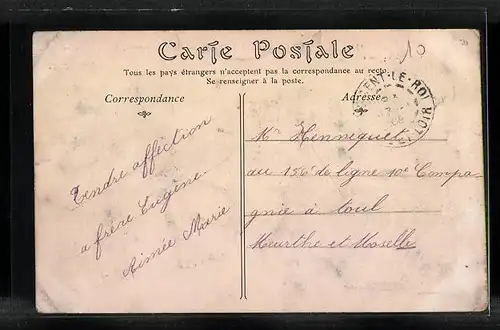 Carte Postale
Tous les pays étrangers n'acceptent pas la correspondance au recto.
Se renseigner à la poste.
Correspondance
Adresse
10
ENT-LE-ROI
Tendre affection
a frère Eugène
Aimée Marie
Mr Hennequet
au 156e de ligne 10e Compa
gnie à toul
Meurthe et Moselle